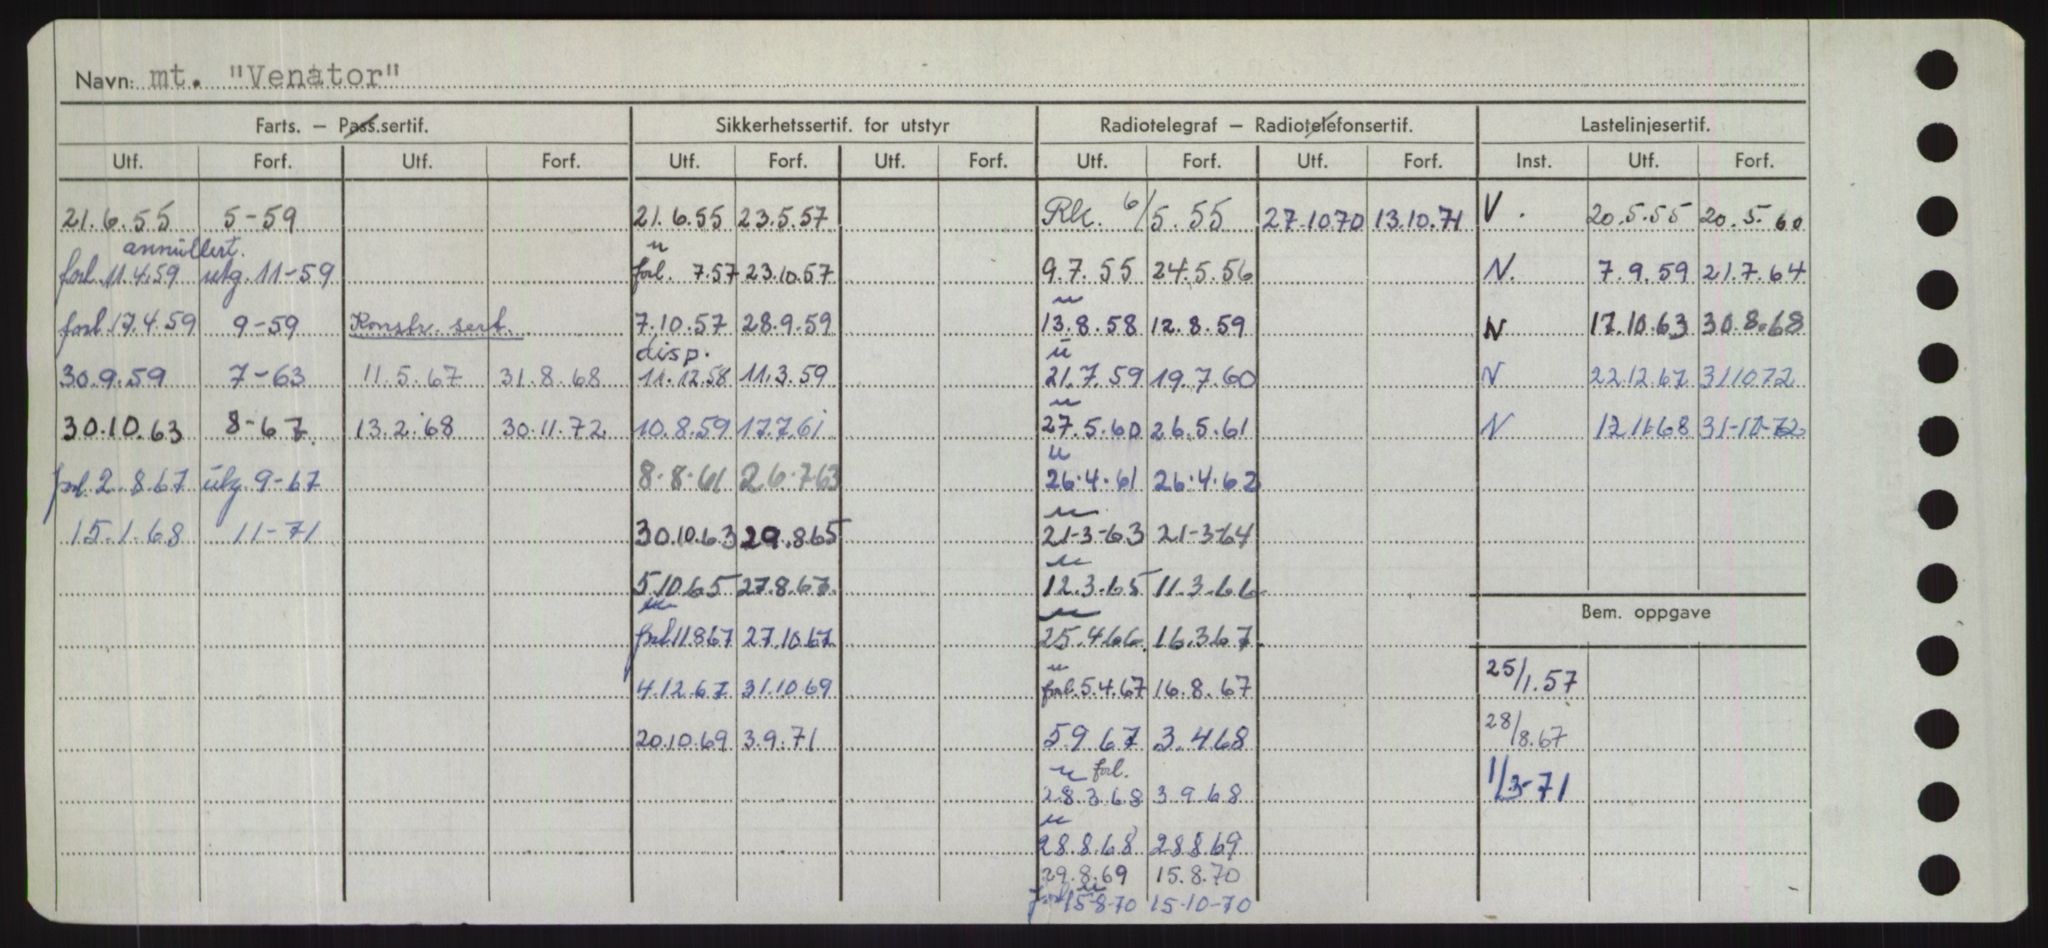 Navn: mt. "Venator"
Farts. — Pass.sertif. Sikkerhetssertif. for utstyr Radiotelegraf — Radiotelefonsertif. Lastelinjesertif.
Utf. Forf. Utf. Forf. Utf. Forf. Utf. Forf. Utf. Forf. Utf. Forf. Inst. Utf. Forf.
21.6.55 5-59 21.6.55 23.5.57 Rk. 6/5.55 27.10.70 13.10.71 V. 20.5.55 20.5.60
annullert. u
forl. 11.4.59 utg. 11-59 forl. 7.57 23.10.57 9.7.55 24.5.56 N. 7.9.59 21.7.64
u
forl. 17.4.59 9-59 Konstr. sert. 7.10.57 28.9.59 13.8.58 12.8.59 N 17.10.63 30.8.68
disp. u
30.9.59 7-63 11.5.67 31.8.68 11.12.58 11.3.59 21.7.59 19.7.60 N 22.12.67 31.10.72
u
30.10.63 8-67. 13.2.68 30.11.72 10.8.59 17.7.61 27.5.60 26.5.61 N 12.11.68 31-10-72
u
forl. 2.8.67 utg. 9-67 8-8-61 26.7.63 26.4.61 26.4.62
u
15.1.68 11-71 30.10.63 29.8.65 21-3-63 21-3-64
u
5.10.65 27.8.67. 12.3.65 11.3.66
Bem. oppgave
u u
forl. 11.8.67 27.10.67 25.4.66. 16.3.67.
u
4.12.67 31.10.69 forl. 5.4.67 16.8.67 25/1.57
20.10.69 3.9.71 5.9.67 3.4.68 28/8.67
u forl.
28.3.68 3.9.68 1/3-71
u
28.8.68 28.8.69
29.8.69 15.8.70
u
forl. 15-8-70 15-10-70